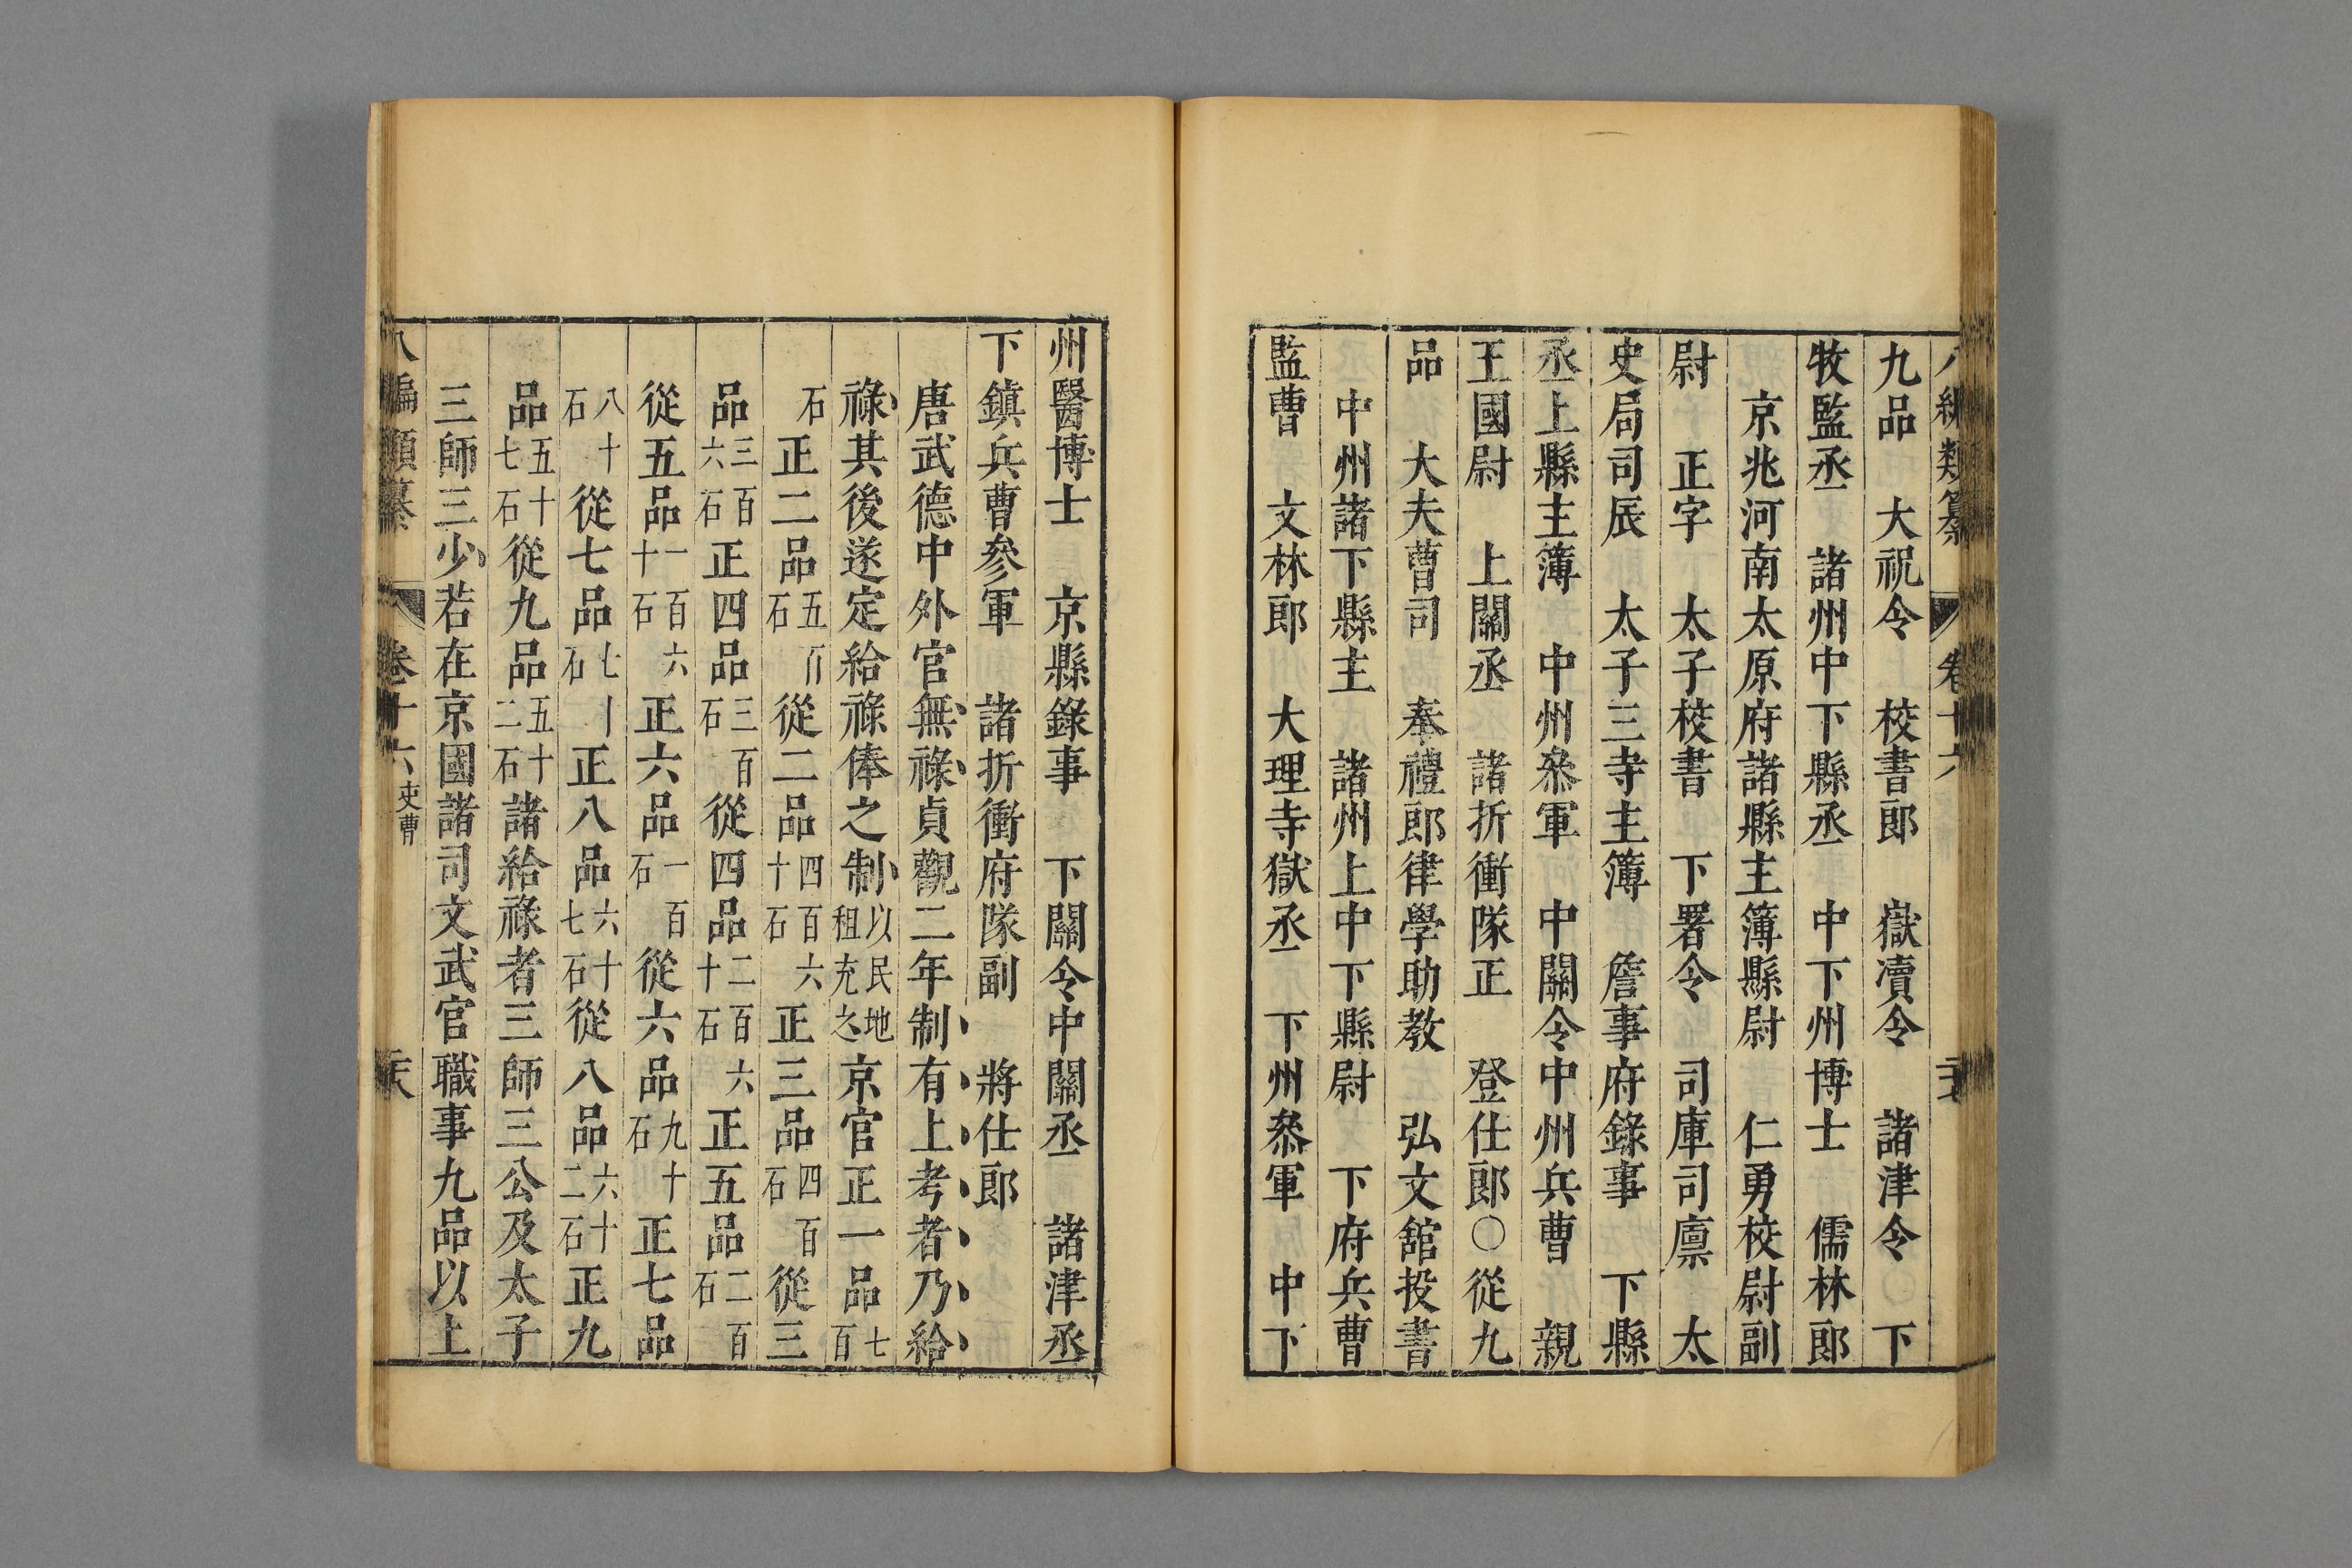 八編類纂 卷十六
九品 大祝令 校書郎 嶽瀆令 諸津令○下
牧監丞 諸州中下縣丞 中下州博士 儒林郎
京兆河南太原府諸縣主簿縣尉 仁勇校尉副
尉 正字 太子校書 下署令 司庫司廪 太
史局司辰 太子三寺主簿 詹事府錄事 下縣
丞上縣主簿 中州叅軍 中關令中州兵曹 親
王國尉 上關丞 諸折衝隊正 登仕郎○從九
品 大夫曹司 奉禮郎律學助教 弘文舘投書
中州諸下縣主 諸州上中下縣尉 下府兵曹
監曹 文林郎 大理寺獄丞 下州叅軍 中下
州醫博士 京縣錄事 下關令中關丞 諸津丞
下鎮兵曹參軍 諸折衝府隊副 將仕郎
唐武德中外官無祿貞觀二年制有上考者乃給
祿其後遂定給祿俸之制以民地租充之京官正一品七百
石正二品五百石從二品四百六十石正三品四百石從三
品三百六石正四品三百石從四品二百六十石正五品二百石
從五品一百六十石正六品一百石從六品九十石正七品
八十石從七品七十石正八品六十七石從八品六十二石正九
品五十七石從九品五十二石諸給祿者三師三公及太子
三師三少若在京國諸司文武官職事九品以上
八編類纂 卷十六 吏曹